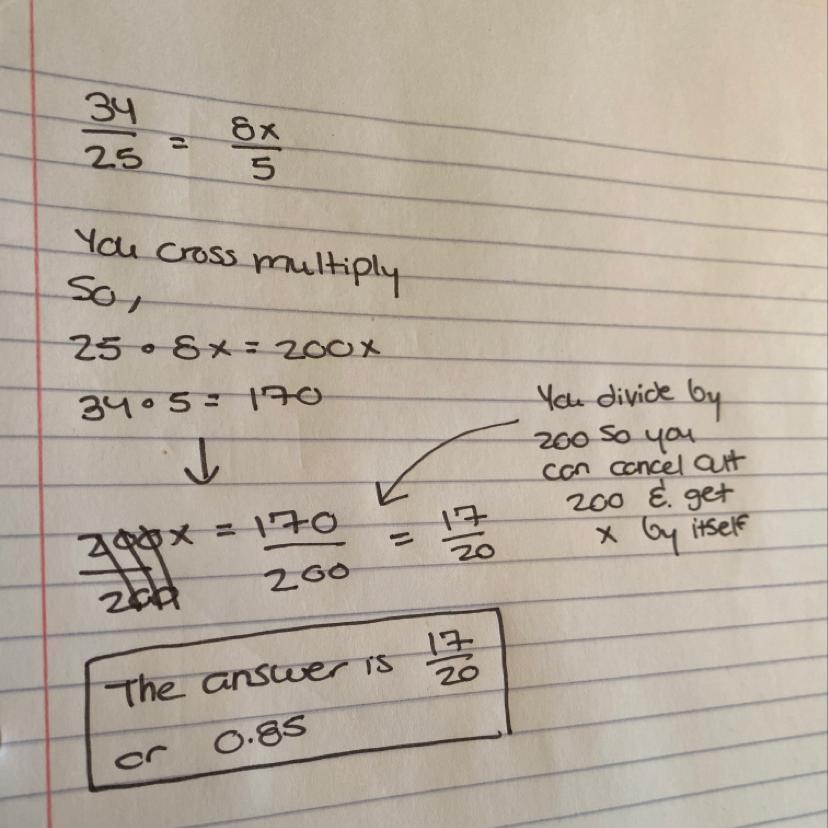 34/25 = 8x/5
You cross multiply
So,
25 • 8x = 200x
34 • 5 = 170
↓
You divide by
200 so you
can cancel out
200 & get
x by itself
200x/200 = 170/200 = 17/20
The answer is 17/20
or 0.85